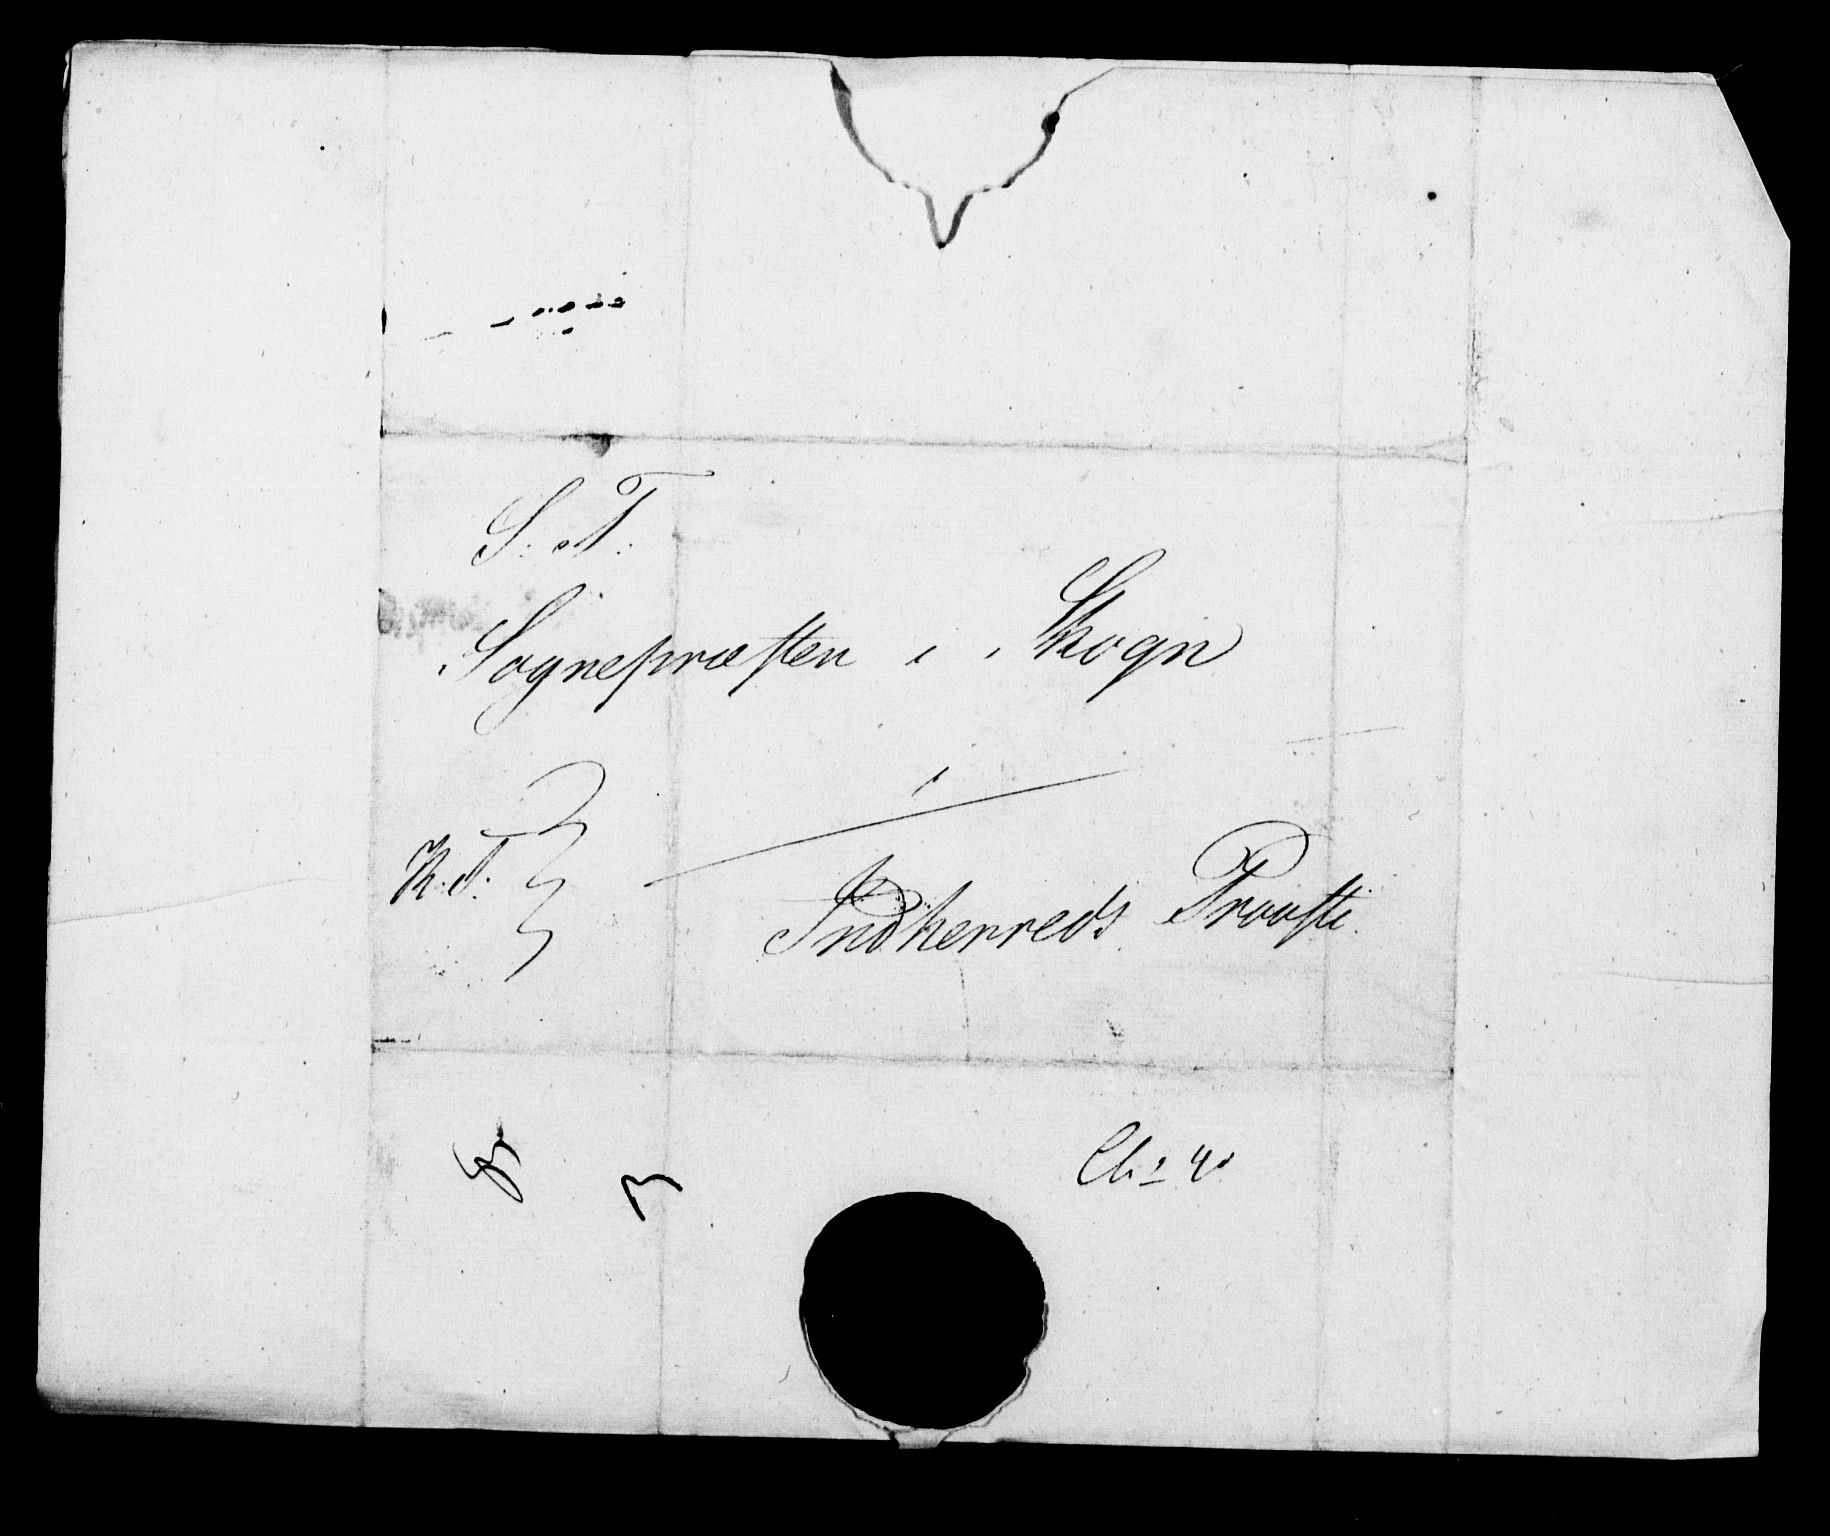 S: T:
Sognepræsten i Skogn
i
K. T.
Indherreds Provsti.